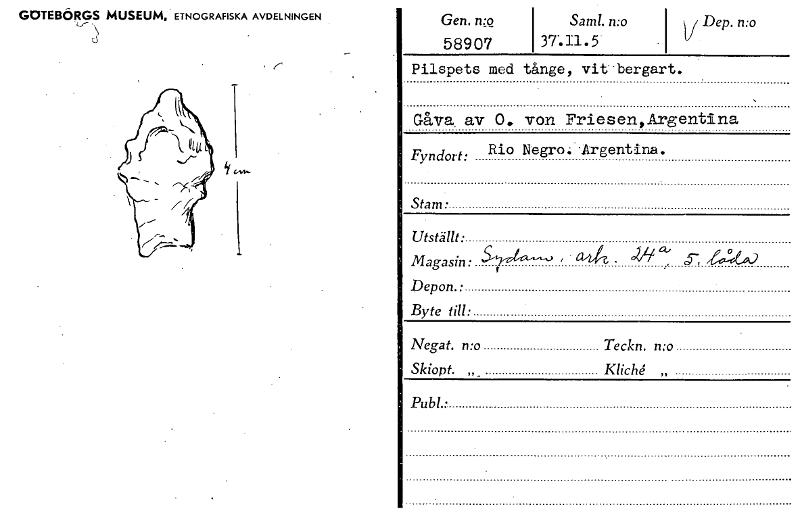 GÖTEBORGS MUSEUM, ETNOGRAFISKA AVDELNINGEN
4 cm
Gen. n:o Saml. n:o Dep. n:o
58907 37.11.5
Pilspets med tånge, vit bergart.
Gåva av O. von Friesen, Argentina
Fyndort: Rio Negro. Argentina.
Stam:
Utställt:
Magasin: Sydam. ark. 24a, 5. låda
Depon.:
Byte till:
Negat. n:o Teckn. n:o
Skiopt. „ Kliché „
Publ.: